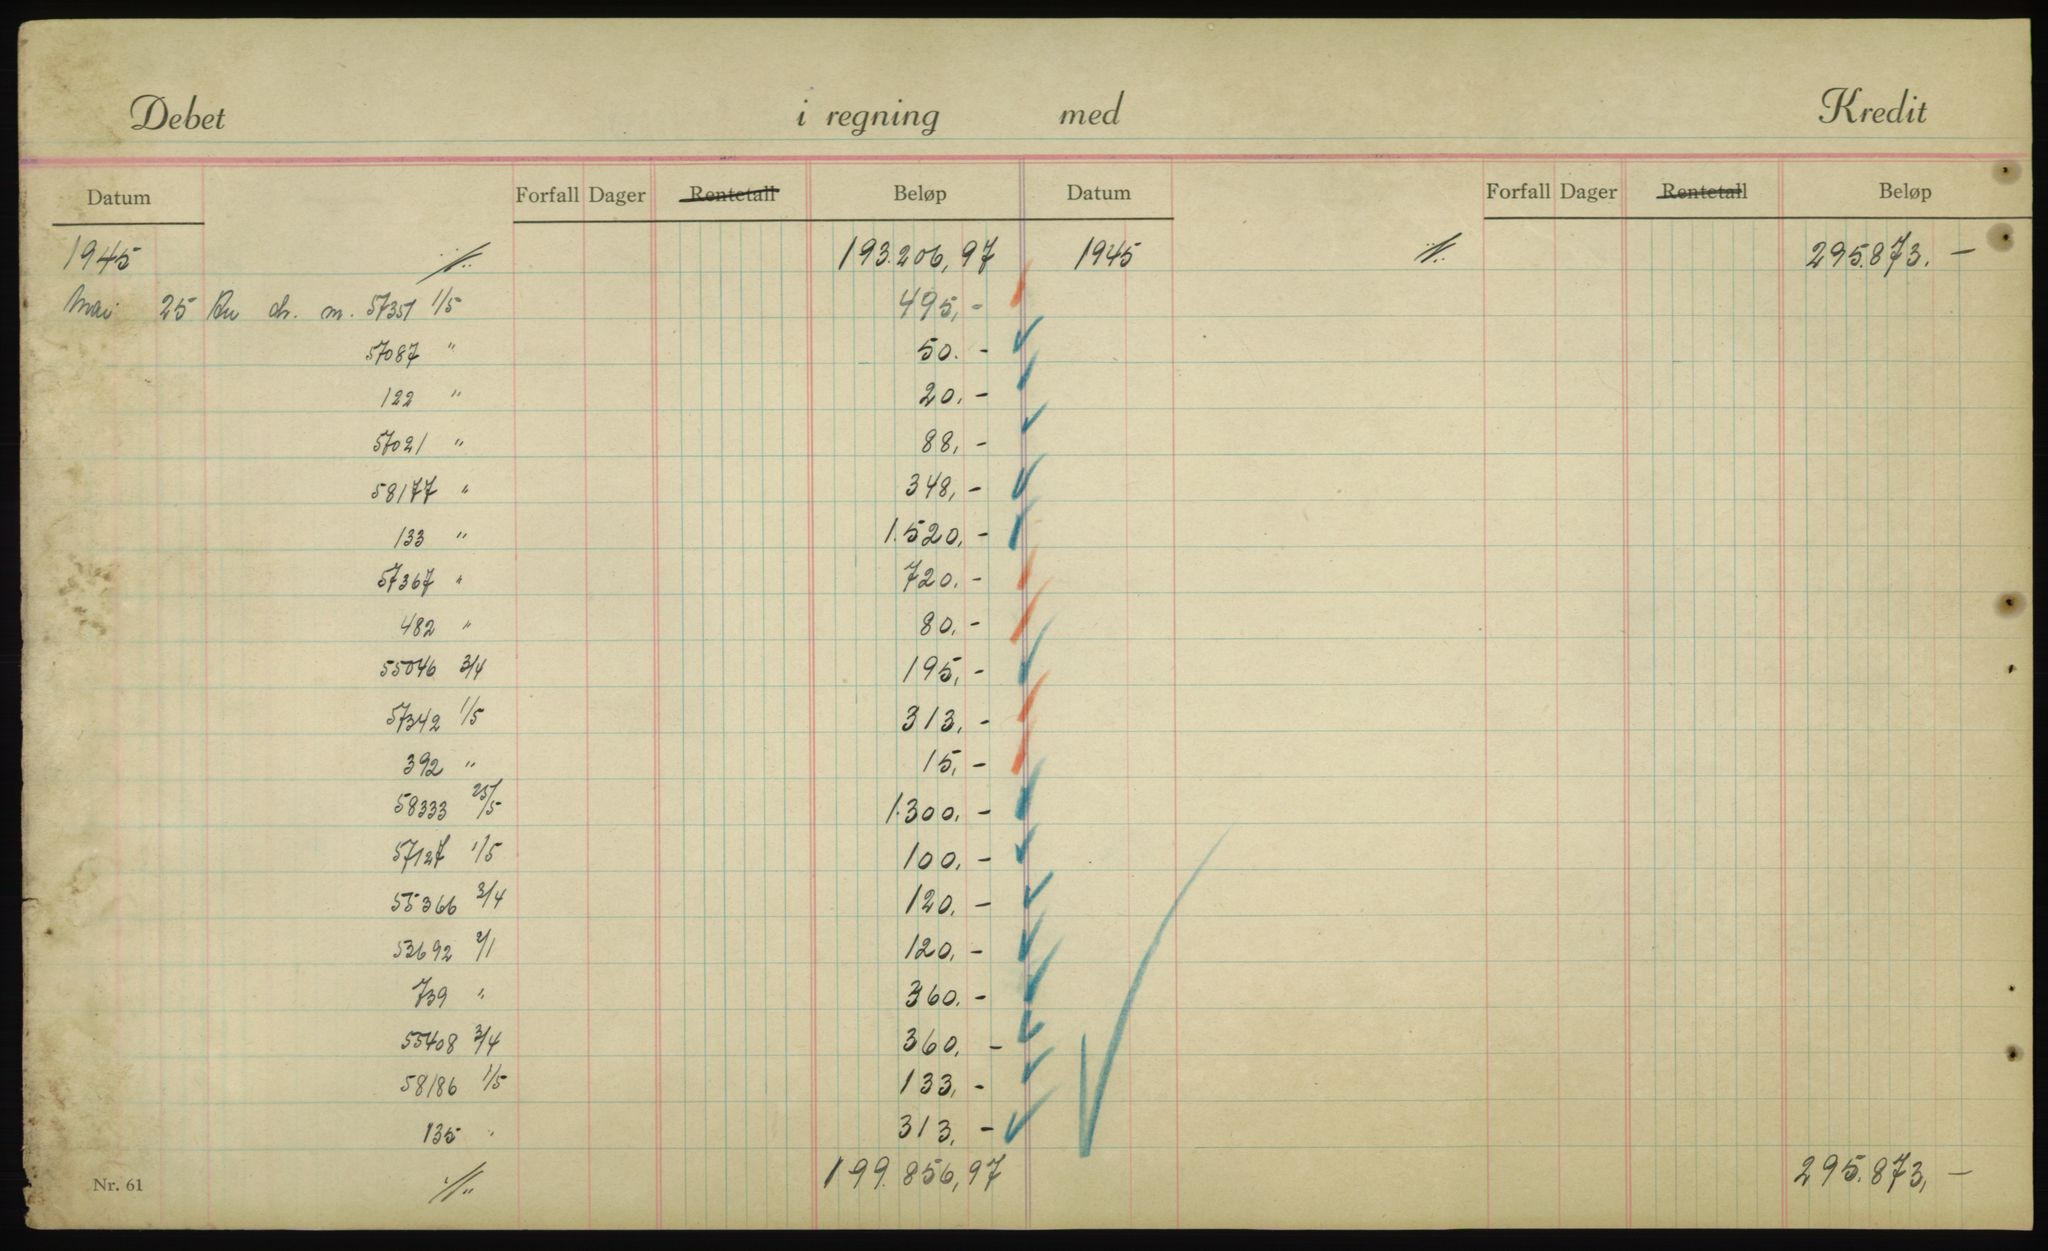 Debet i regning med Kredit
Datum Forfall Dager Rentetall Beløp Datum Forfall Dager Rentetall Beløp
1945 ·/.. 193.206,97 1945 ·/.. 295.873.—
Mai 25 m. 57351 1/5 495,-
57087 " 50.-
122 " 20.-
57021 " 88,-
58177 " 348,-
133 " 1.520,-
57367 " 720.-
482 " 80,-
55046 3/4 195,-
57342 1/5 313,-
392 " 15,-
58333 25/5 1.300,-
57127 1/5 100,-
55366 3/4 120,-
53692 2/1 120,-
739 " 360.-
55408 3/4 360,-
58186 1/5 133,-
135 " 313,-
Nr. 61 ·/.. 199.856,97 295.873,—